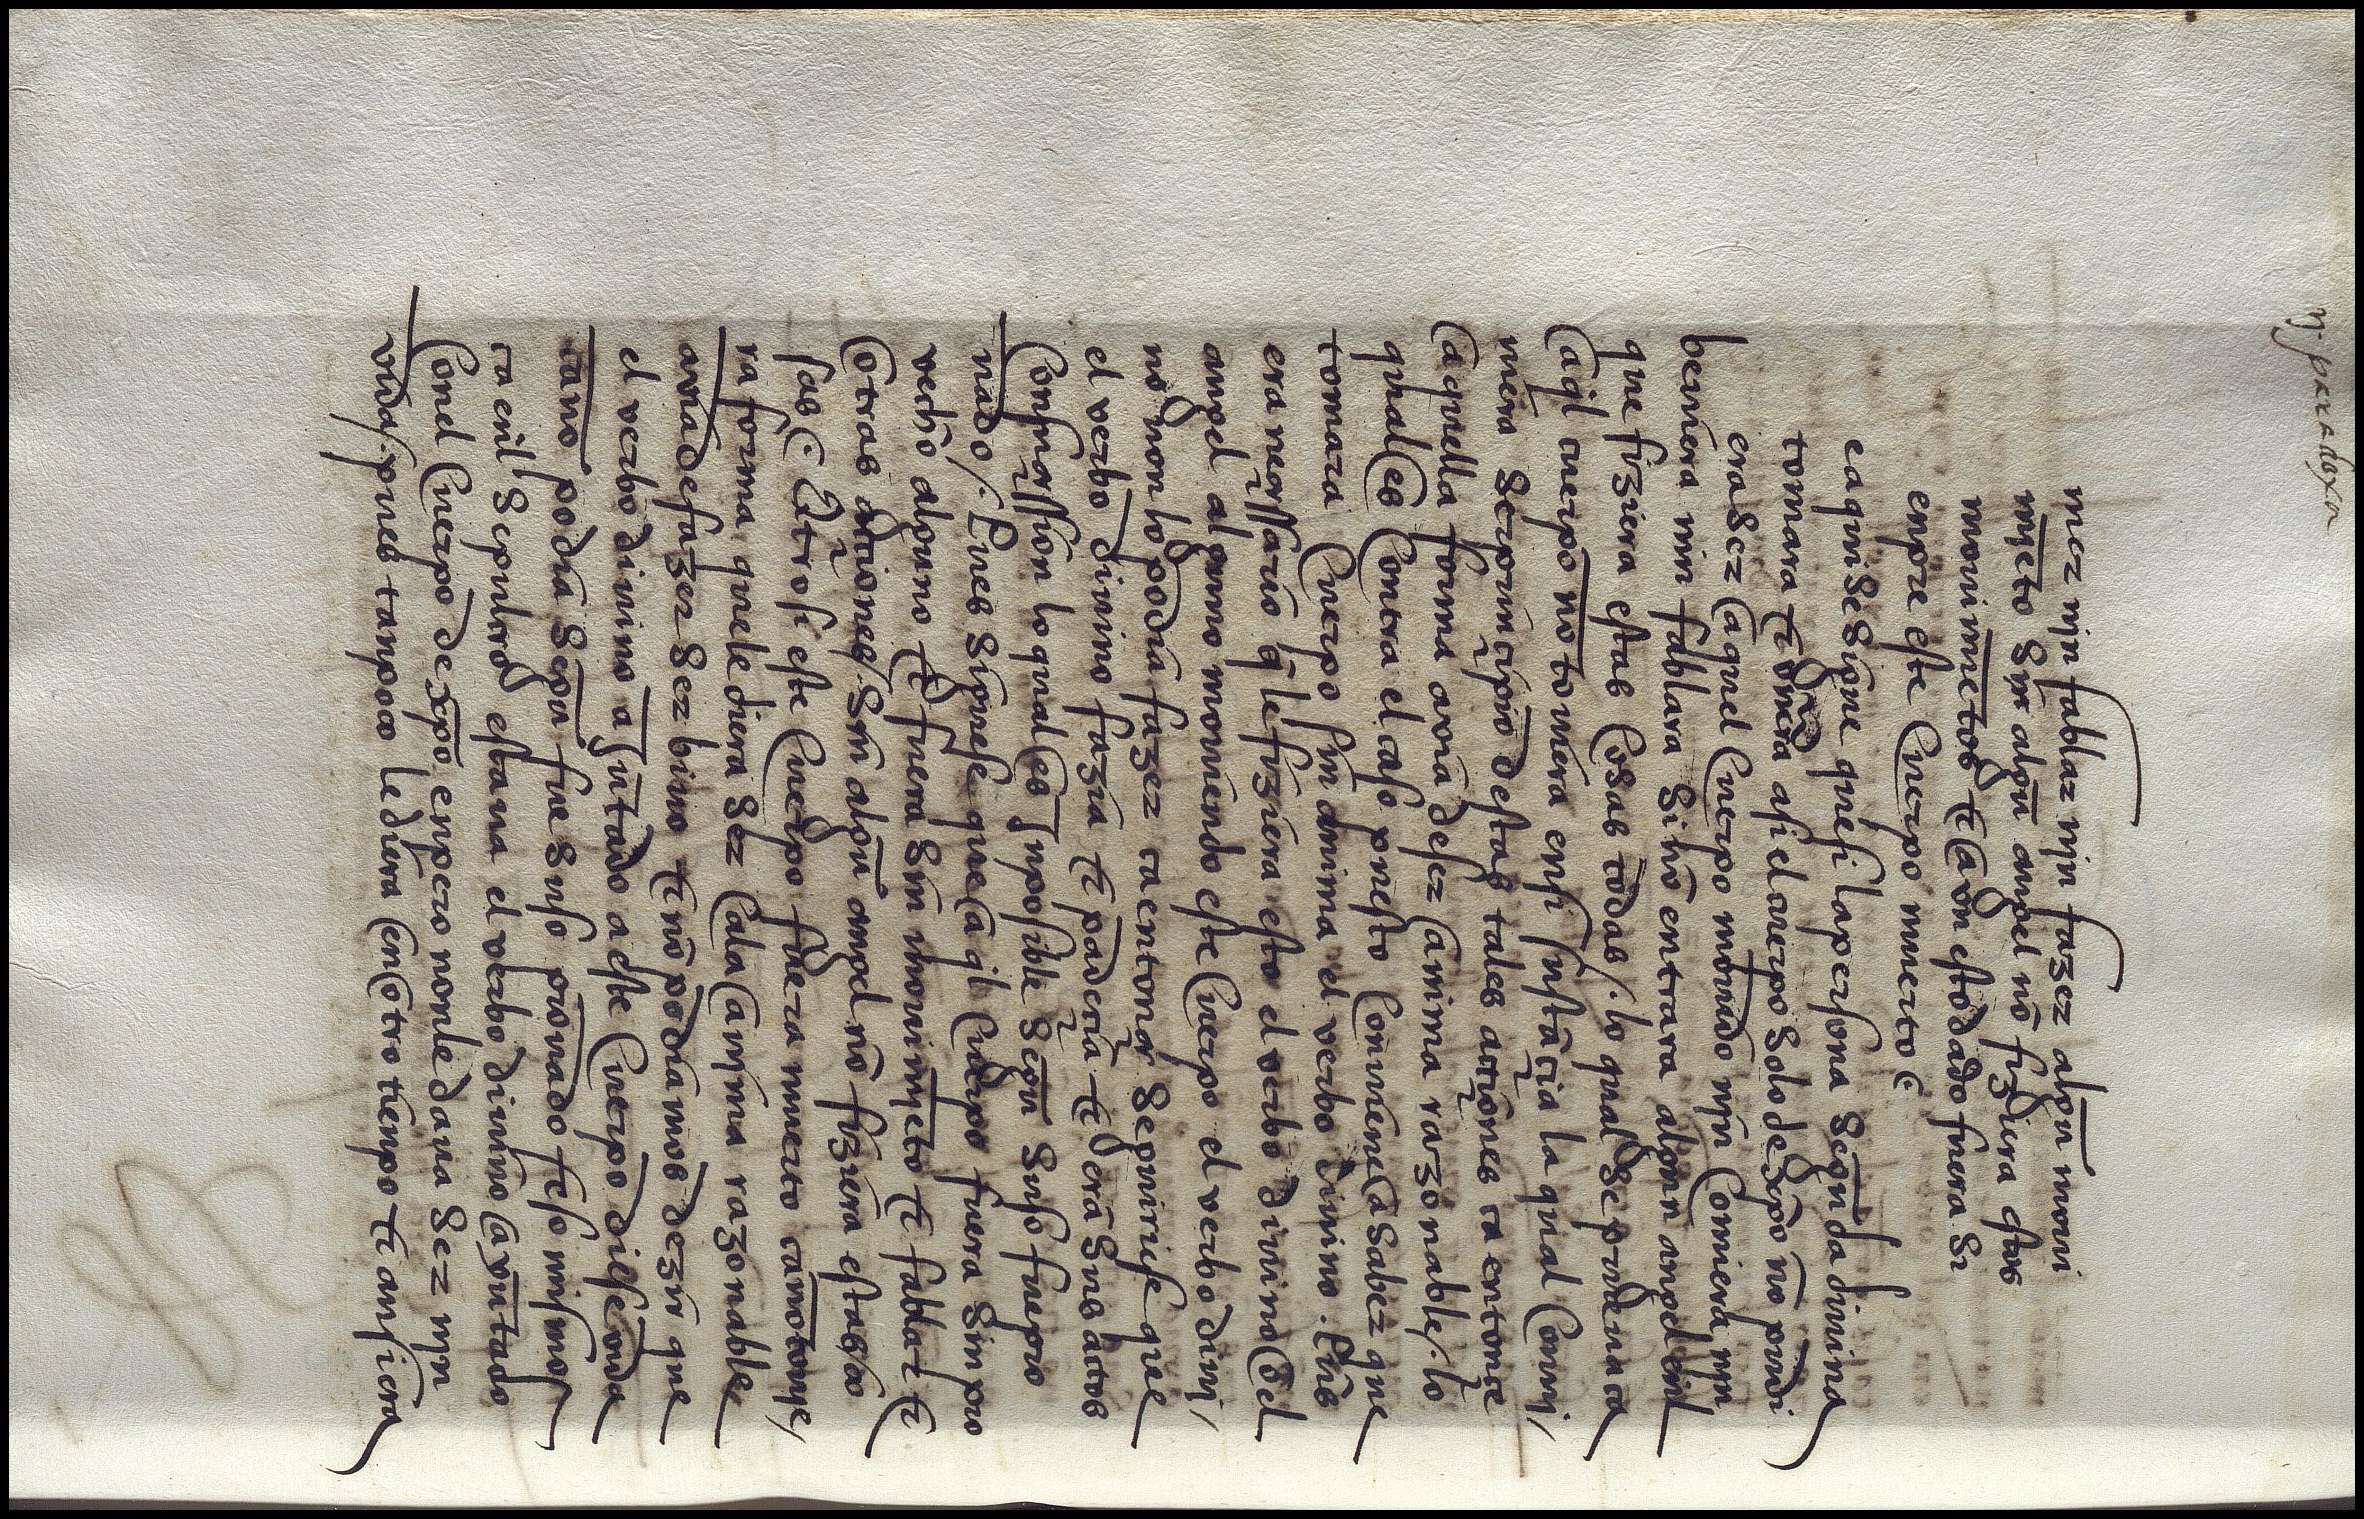 ij paradoxa
mer njn fablar njn fazer algũ movi
mjẽto Syn algũ angel nõ fiziera estas
movimjẽtos & a vn esto dado fuera Si
enpre este Cuerpo muerto
E aqui Se Sigue que si la persona Segũda divina
tomara asi el cuerpo Solo de xp̃o no pudi
era Ser aquel Cuerpo movido njn Comiera njn
beviera njn fablara Sinõ entrara algun angel enl
que fiziera estas Cosas todas /. lo qual Se prueua
Ca aql cuerpo nõ toviera ensi sustãçia la qual Convj
niera Ser prinçipio destas tales actiones ca entonçe
aquella forma avia de ser anima razonable /. lo
qual es Contra el caso puesto Conviene a Saber que
tomara Cuerpo sin anima el verbo divino. Pues
era neçessario q̃ le fiziera esto el verbo divino o el
angel alguno moviendo este Cuerpo el verbo divj
no non lo podia fazer ca entonçe Seguirse que
el verbo divino fazia & padeçia & era Sus actos
Confussion lo qual es Inposible Segũ Suso fue pro
uado /. Pues Siguese que aql Cuerpo fuera Sin pro
uecho alguno & fuera Sin movimjẽto & fabla &
otras actiones /. Sin algũ angel nõ fiziera estas co
sas. Otrosi este Cuerpo fuera muerto ca no tovye
ra forma que le diera Ser Ca la anjma razonable
avia de fazer Ser bivo & nõ podiamos dezir que
el verbo divino ajũtado a este Cuerpo diese vida
ca no podia Segũ fue Suso prouado & eso mismo
ca enl Sepulcro estaua el verbo divino ajũtado
Con el Cuerpo de xp̃o enpero non le daua Ser njn
vida. pues tanpoco le diera en otro tienpo & ansi era